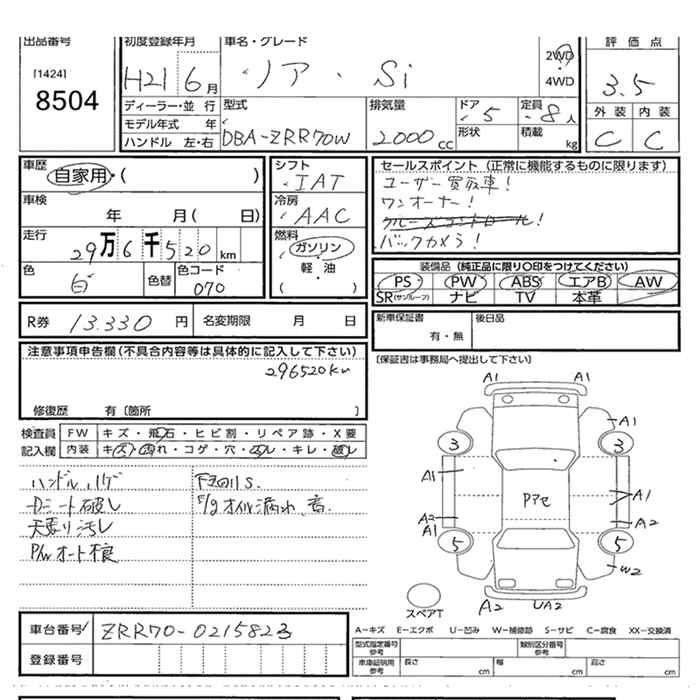 出品番号
[1424]
8504
初度登録年月
H21 6月
車名・グレード
ノア・Si
2WD
4WD
評価点
3.5
外装 内装
C C
ディーラー・並 行
モデル年式 年
ハンドル 左・右
型式
DBA-ZRR70W
排気量
2000 cc
ドア 5
形状
定員 8人
積載 kg
車歴
自家用・( )
車検
年 月( 日)
走行
29万6千520km
色
白
色替
色コード
070
シフト
IAT
冷房
AAC
燃料
ガソリン
・
軽・油
( )
セールスポイント (正常に機能するものに限ります)
ユーザー買取車!
ワンオーナー!
クルーズコントロール!
バックカメラ!
装備品 (純正品に限り〇印をつけてください)
PS PW ABS エアB AW
SR(サンルーフ) ナビ TV 本革
R券 13.330円
名変期限 月 日
新車保証書
有・無
後日品
(保証書は事務局へ提出して下さい)
注意事項申告欄(不具合内容等は具体的に記入して下さい)
296520km
修復歴 有〔箇所 〕
検査員
記入欄
FW キズ・飛石・ヒビ割・リペア跡・X要
内装 キズ・汚れ・コゲ・穴・ムレ・キレ・破レ
ハンドルハゲ
Dシート破レ
天張り汚レ
P/wオート不良
E/gオイル漏れ、音
A1 A1
A1
3 3
A1
A1
A2
A1
A2
Pアセ
5 5
W2
スペアT
A2 UA2
A−キズ E−エクボ U−凹み W−補修跡 S−サビ C−腐食 XX−交換済
車台番号
ZRR70-0215823
登録番号
型式指定番号
参考
類別区分番号
参考
車庫証明用
参考
長さ cm
幅 cm
高さ cm